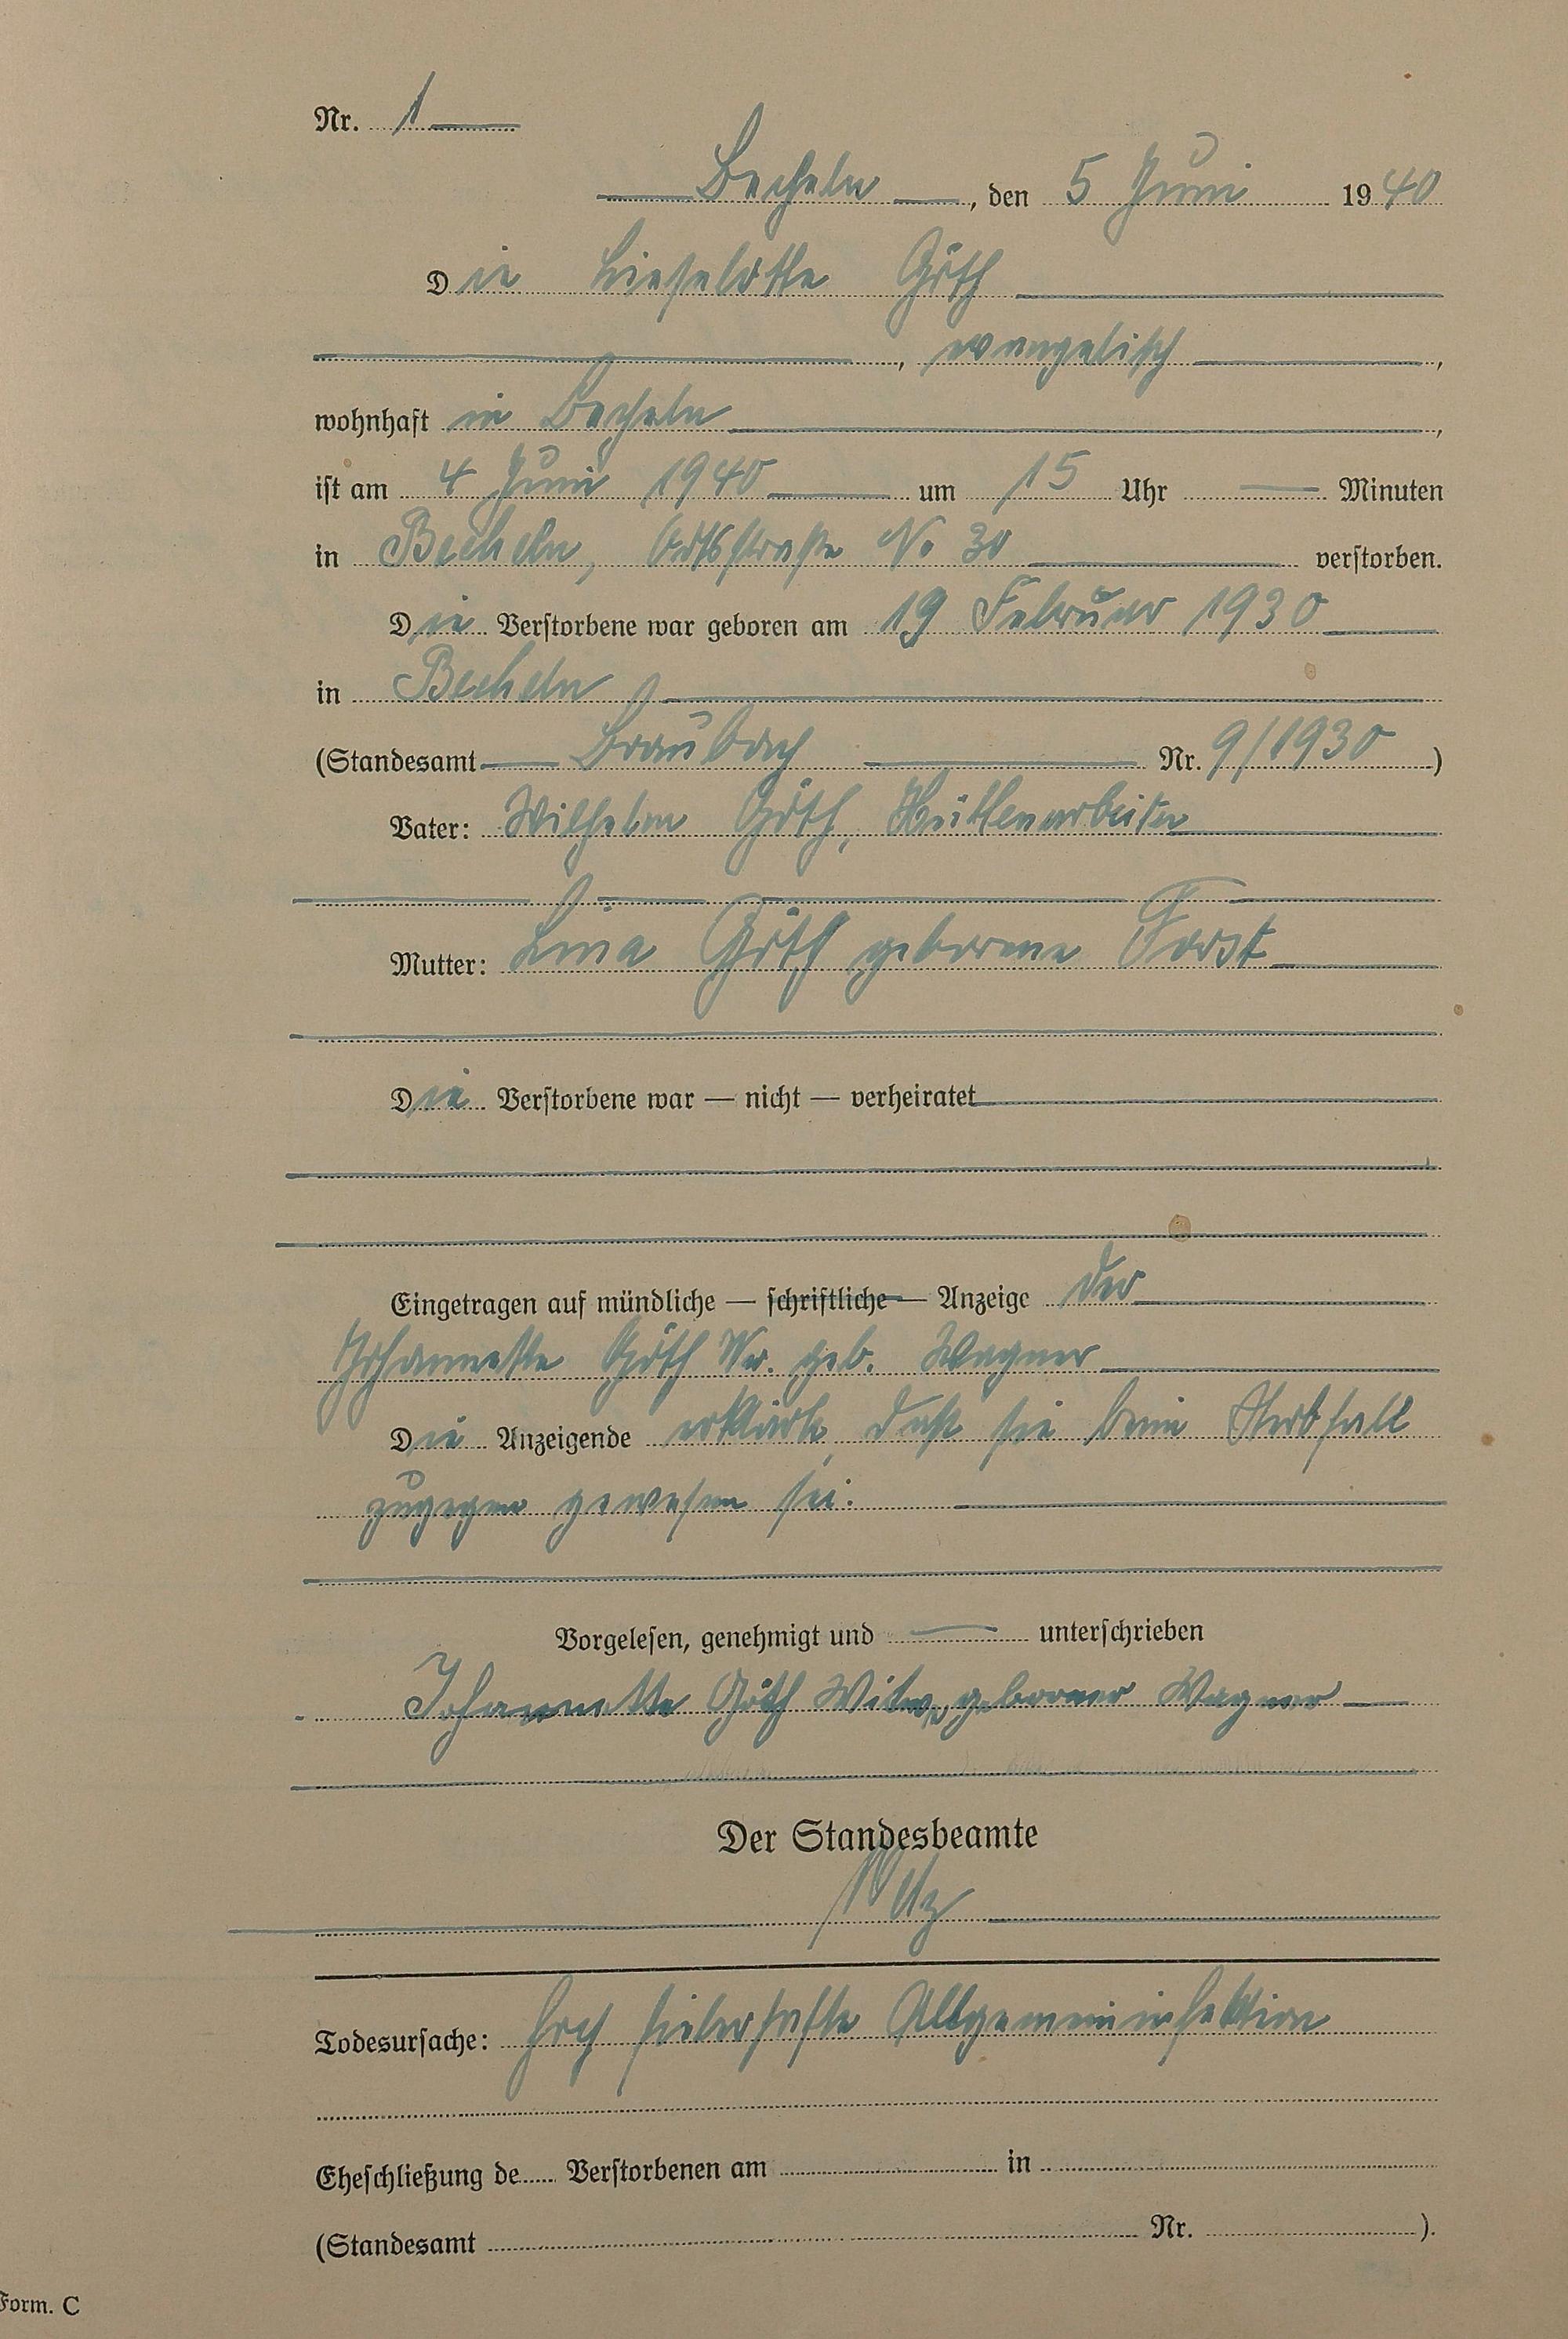 Nr. 1
Becheln, den 5 Juni 1940
Die Lieselotte Göth
, evangelisch,
wohnhaft in Becheln,
ist am 4 Juni 1940 um 15 Uhr — Minuten
in Becheln, Ortsstraße No 30 verstorben.
Die Verstorbene war geboren am 19 Februar 1930
in Becheln
(Standesamt Braubach Nr. 9/1930)
Vater: Wilhelm Göth, Hüttenarbeiter
Mutter: Lina Göth geborene Forst
Die Verstorbene war — nicht — verheiratet
Eingetragen auf mündliche — schriftliche — Anzeige der
Johannette Göth Ww. geb. Wagner
Die Anzeigende erklärte, daß sie beim Sterbfall
zugegen gewesen sei.
Vorgelesen, genehmigt und — unterschrieben
Johannette Göth Witwe geborener Wagner
Der Standesbeamte
Todesursache: Hoch fieberhafte Allgemeininfektion
Eheschließung de Verstorbenen am in
(Standesamt Nr. ).
Form. C